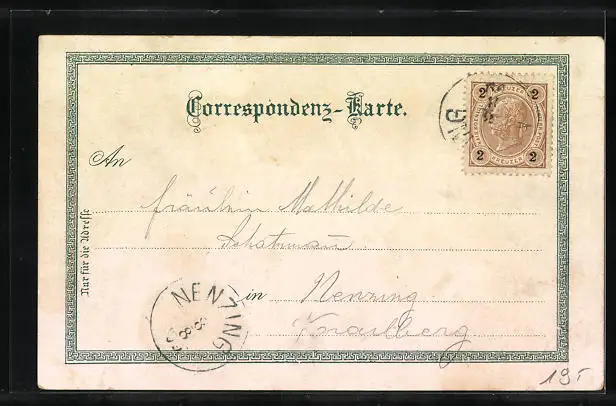 Correspondenz-Karte.
2 2
KREUZER
2 2
An
Fräulein Mathilde
Schatzmann
in Nenzing
Vorarlberg
Nur für die Adresse
NENZING
19.-